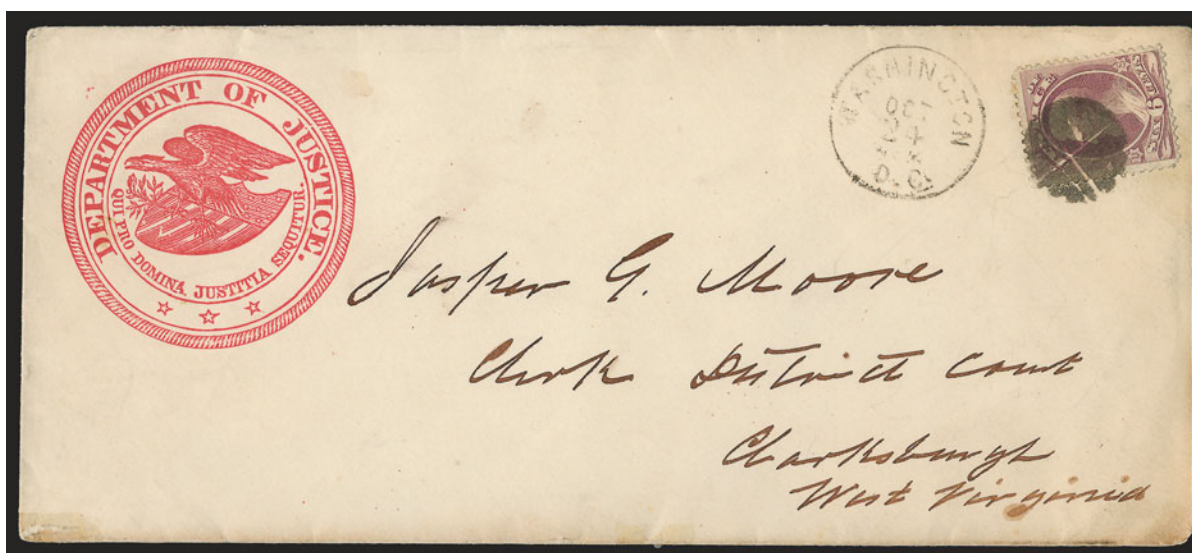 DEPARTMENT OF JUSTICE.
QUI PRO DOMINA JUSTITIA SEQUITUR.
WASHINGTON
OCT
24
D.C.
6
Jasper G. Moore
Clerk District Court
Clarksburgh
West Virginia